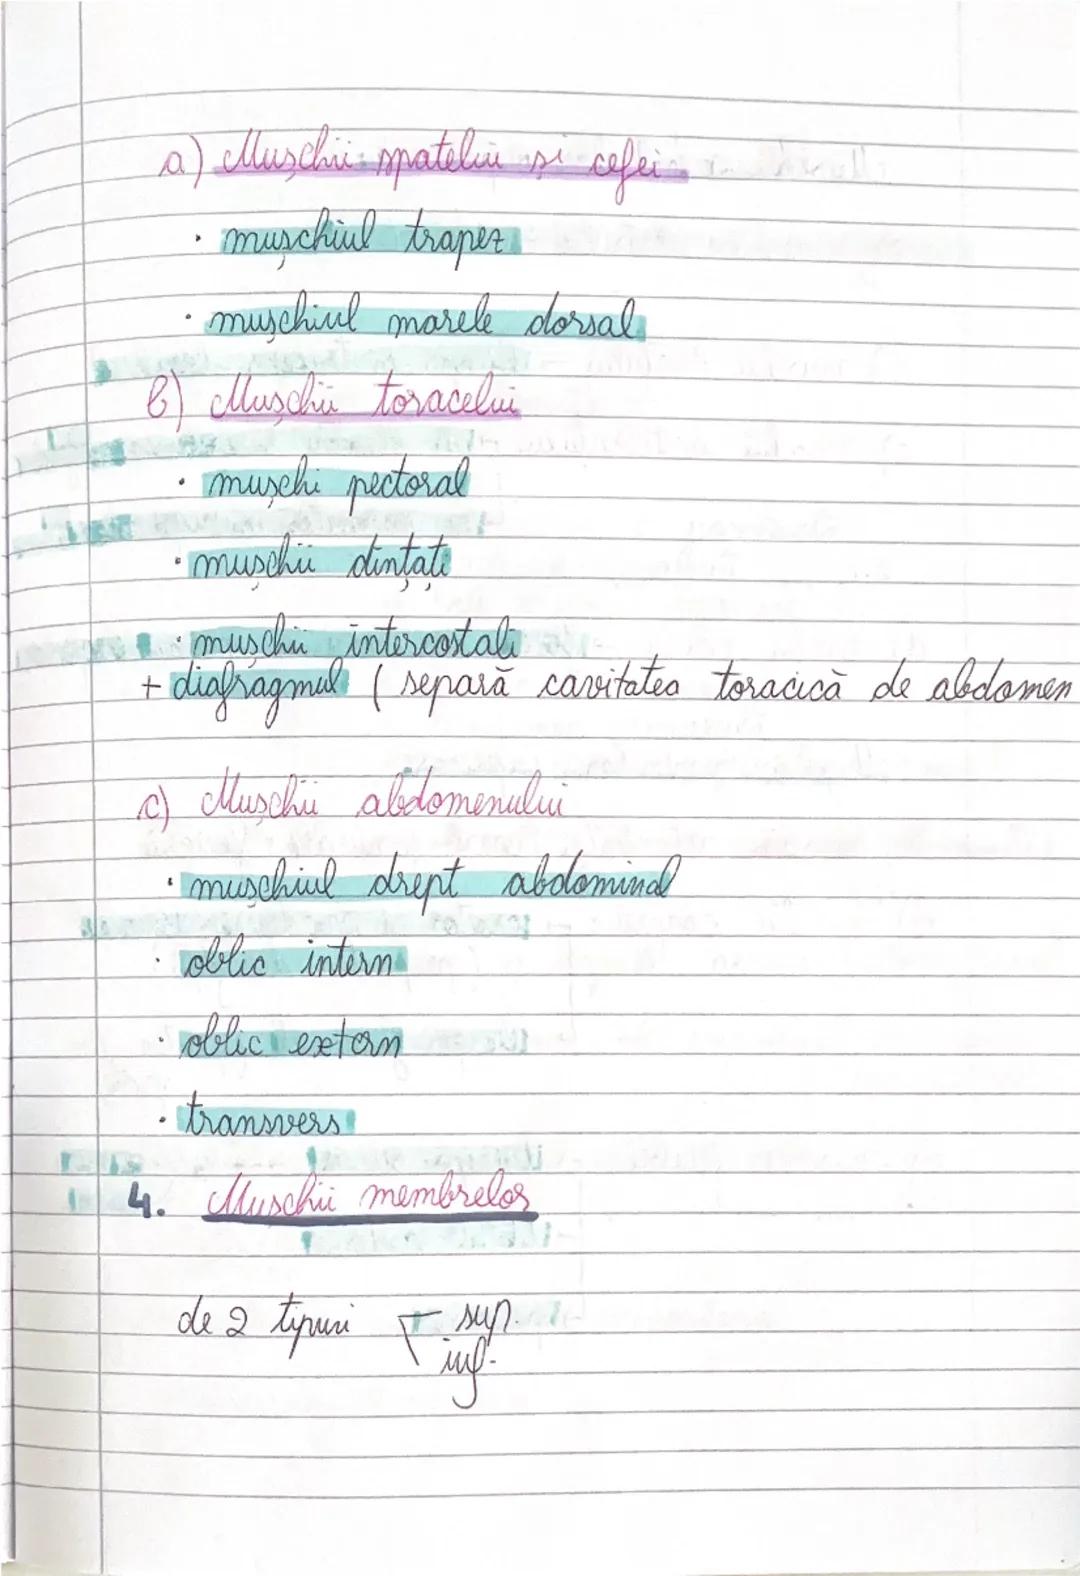 a) Mușchii spatelui și cefei
· mușchiul trapez
· mușchiul marele dorsal
b) Mușchii toracelui
· mușchi pectoral
· mușchii dințati
· mușchii intercostali
+ diafragmul ( separă cavitatea toracică de abdomen
c) Mușchii abdomenului
· mușchiul drept abdominal
· oblic intern
· oblic extern
· transvers
4. Mușchii membrelor
de 2 tipuri sup.
inf.